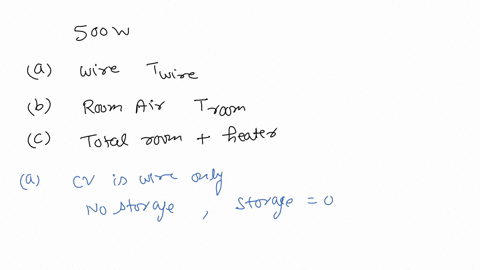 500W
(a) wire Twire
(b) Room Air Troom
(c) Total room + heater
(a) CV is wire only
No storage, storage = 0